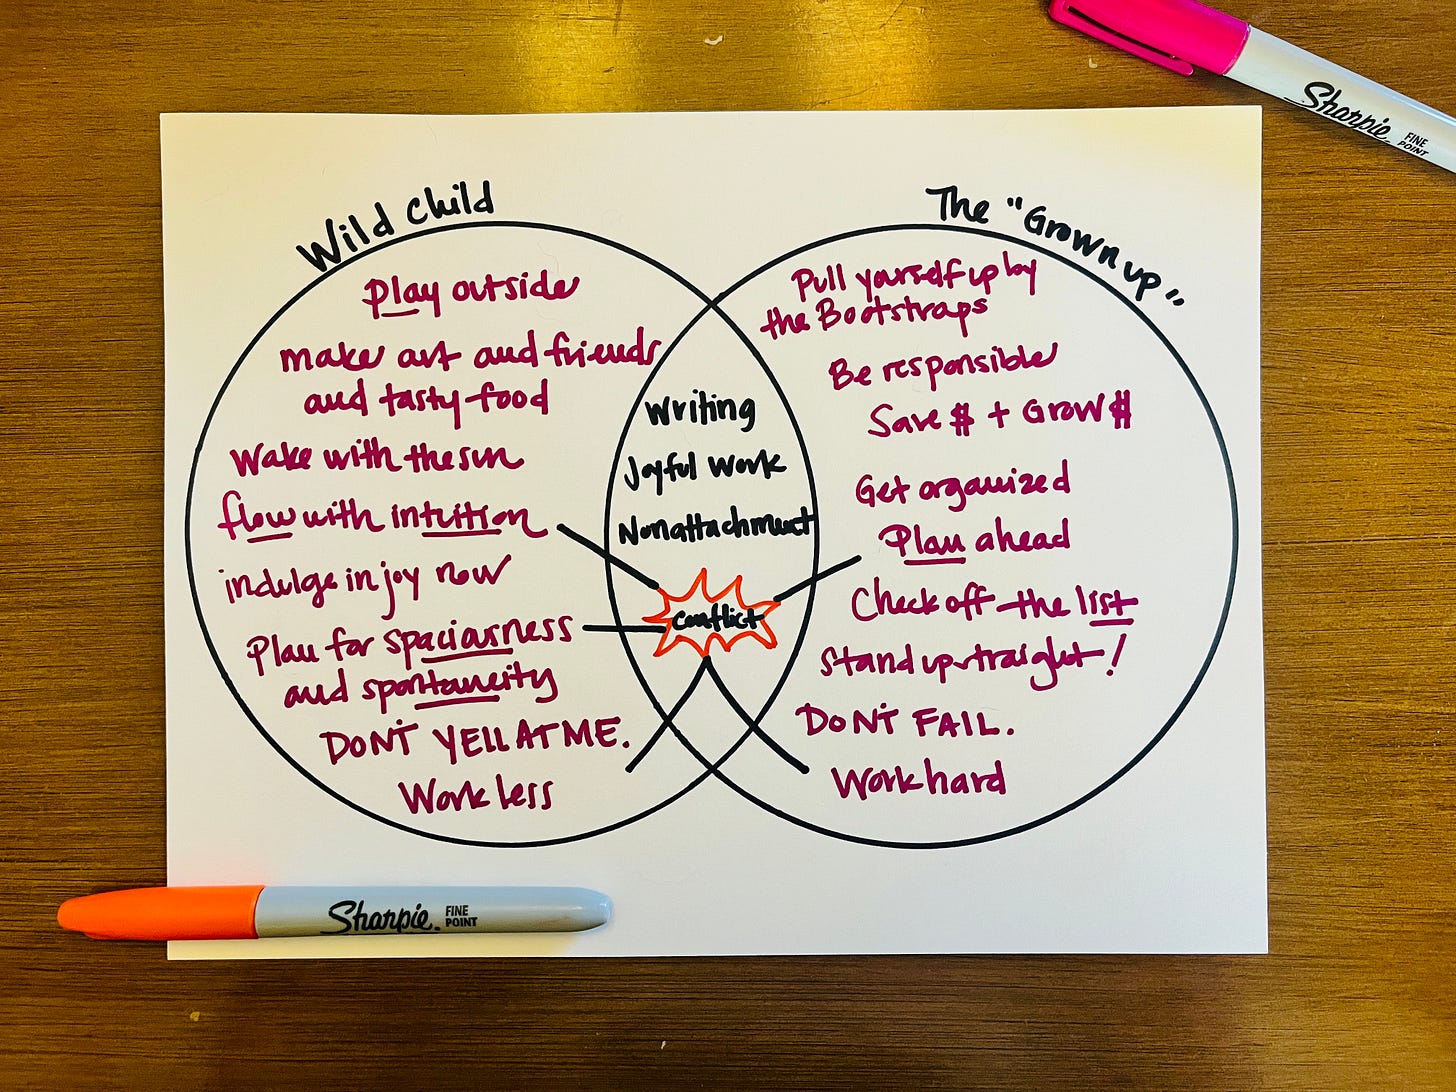 Sharpie
FINE
POINT
Wild Child
play outside
make art and friends
and tasty food
Wake with the sun
flow with intuition
indulge in joy now
Plan for spaciousness
and spontaneity
DON'T YELL AT ME.
Work less
Writing
Joyful Work
Nonattachment
Conflict
The "Grown up"
Pull yourself up by
the Bootstraps
Be responsible
Save $ + Grow $
Get organized
Plan ahead
Check off the list
Stand up straight!
DON'T FAIL.
Work hard
Sharpie.
FINE
POINT